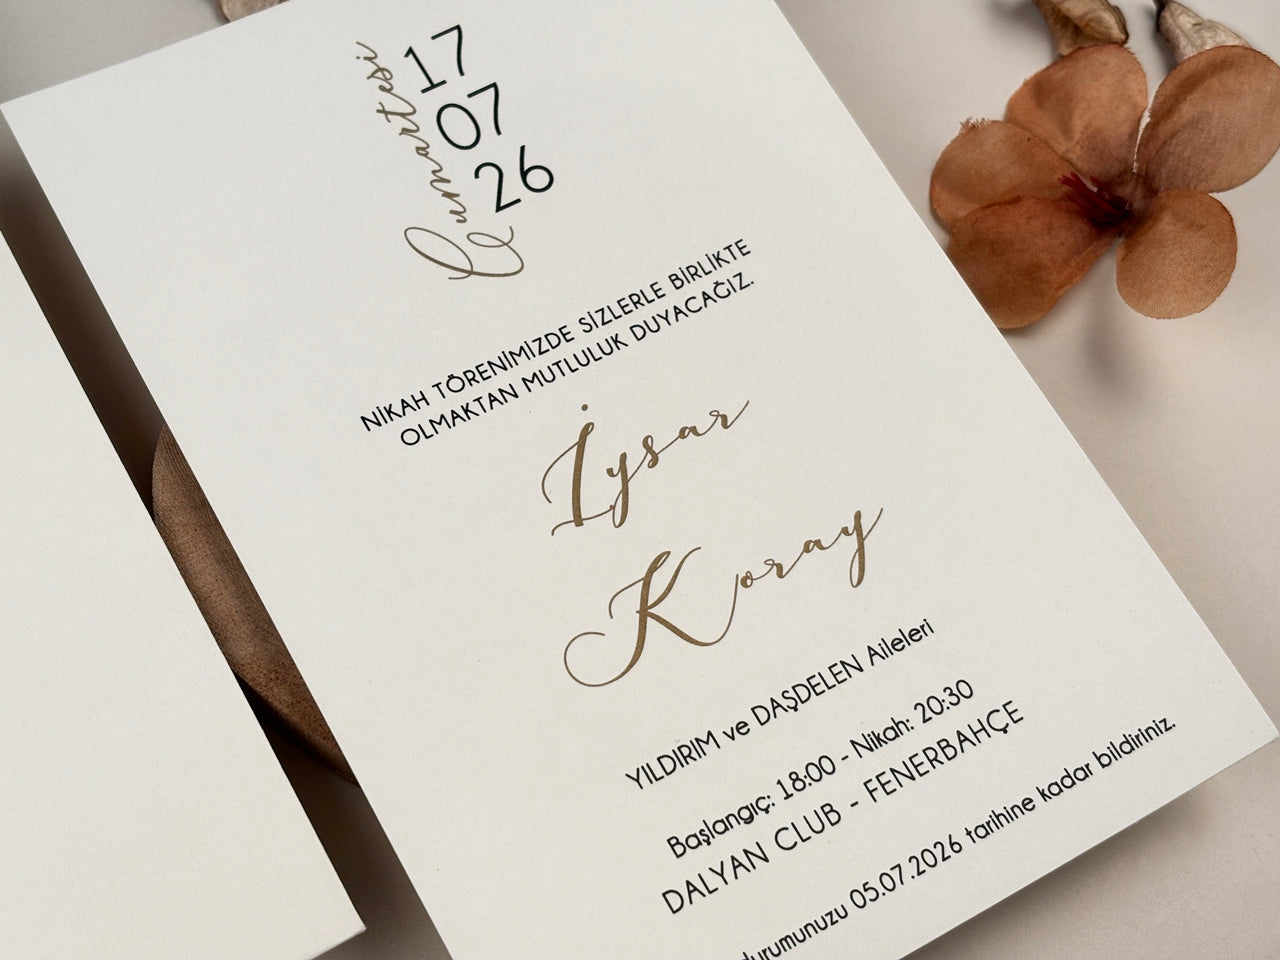 Cumartesi
17
07
26
NİKAH TÖRENİMİZDE SİZLERLE BİRLİKTE
OLMAKTAN MUTLULUK DUYACAĞIZ.
İysar
Koray
YILDIRIM ve DAŞDELEN Aileleri
Başlangıç: 18:00 - Nikah: 20:30
DALYAN CLUB - FENERBAHÇE
durumunuzu 05.07.2026 tarihine kadar bildiriniz.